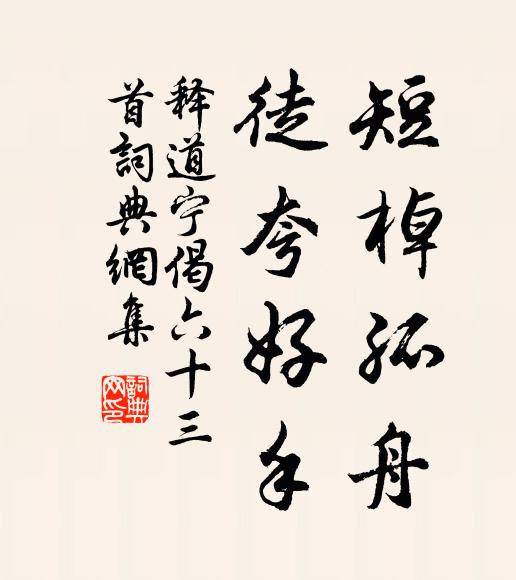 短棹孤舟
徒夸好手
释道宁偈六十三
首詞典網集
詞典
网印